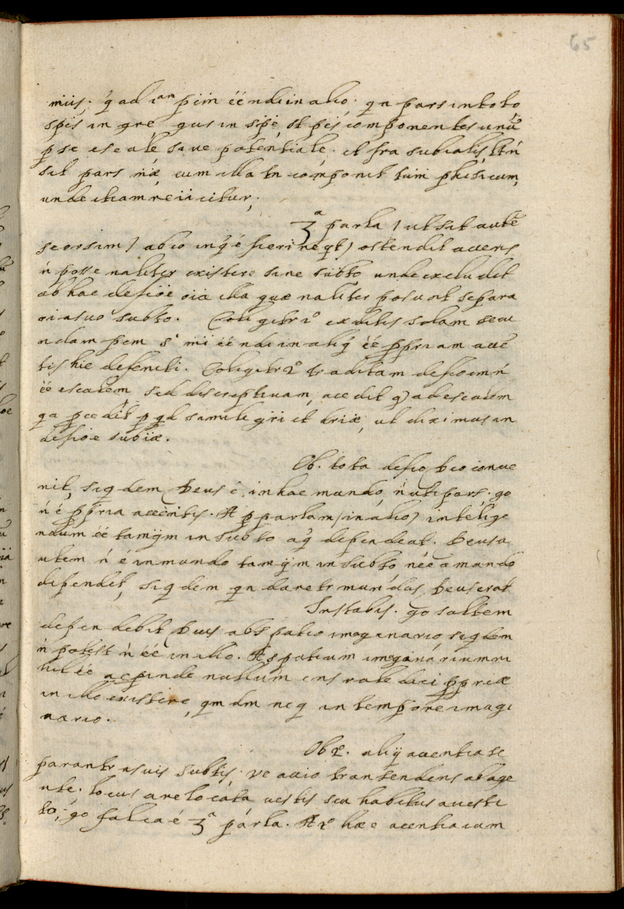 65
miis. q̃ ad 1am pẽm éé ndi in alio. qa pars in toto
spẽs in gre gus in spẽ, et pẽs componentes unũ
p se esc ale sive potentiale. et fra subialis, ltñ
sit pars ñæ cum illa tñ componit tum phisicum,
unde etiam reiicitur;
3a parla / ut sit autẽ
seorsim / ab eo in q̃ é fieri neqt / ostendit accens
ñ posse naliter existere sine subto unde excludit
ab hac defiõe oia illa quæ naliter possunt separa
ri a suo subto. Coligitr 1o ex dictis solam secu
ndam pem éé ndi in aliq̃ éé ppriam acce
tis hic defeniti. Coligitr 2o traditam defiõem ñ
éé escalem sed discreptivam, accedit q) ad escalem
qa p qd simili gri et driæ, ut diximus in
defiõe subiæ.
Ob. 1o ta defio Deo conve
nit, siqdem Deus é in hac mundo, ñ uti pars. go
ñ é ppria accentis. R p parlam (in alio) intelige
ndum éé tamqm in subto a q̃ dependeat. Deus a
utem ñ é in mundo tamqm in subto néc a mundo
dependet, siqdem qn daretr mundus, Deus erat
Instabis. go saltem
dependebit Deus ab spatio imaginario siqdem
ñ potest ñ éé in alio. R spatium imaginarium ni
hil éé ac pinde nullum ens rale dici ppriæ
in illo existere, qm dm neq in tempore imagi
nario.
Ob 2. aliq̃ accentia se
parantr a suis subtis. ve actio transendens ab age
nte. locus a re locata vestis seu habitus a vesti
to; go falsa é 3a parla. R 2o hæc accentia cum